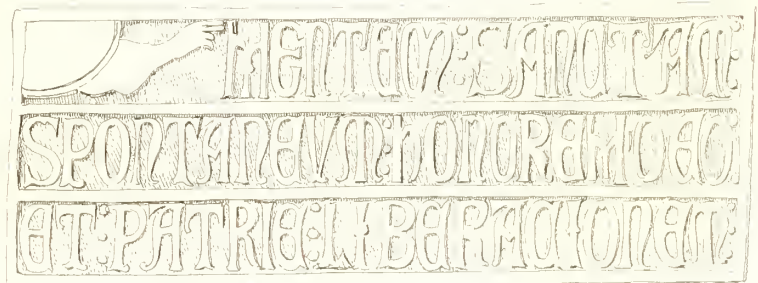 MENTEM:SANCTAM:
SPONTANEVM:HONOREM:DEO:
ET:PATRIE:LIBERACIONEM: